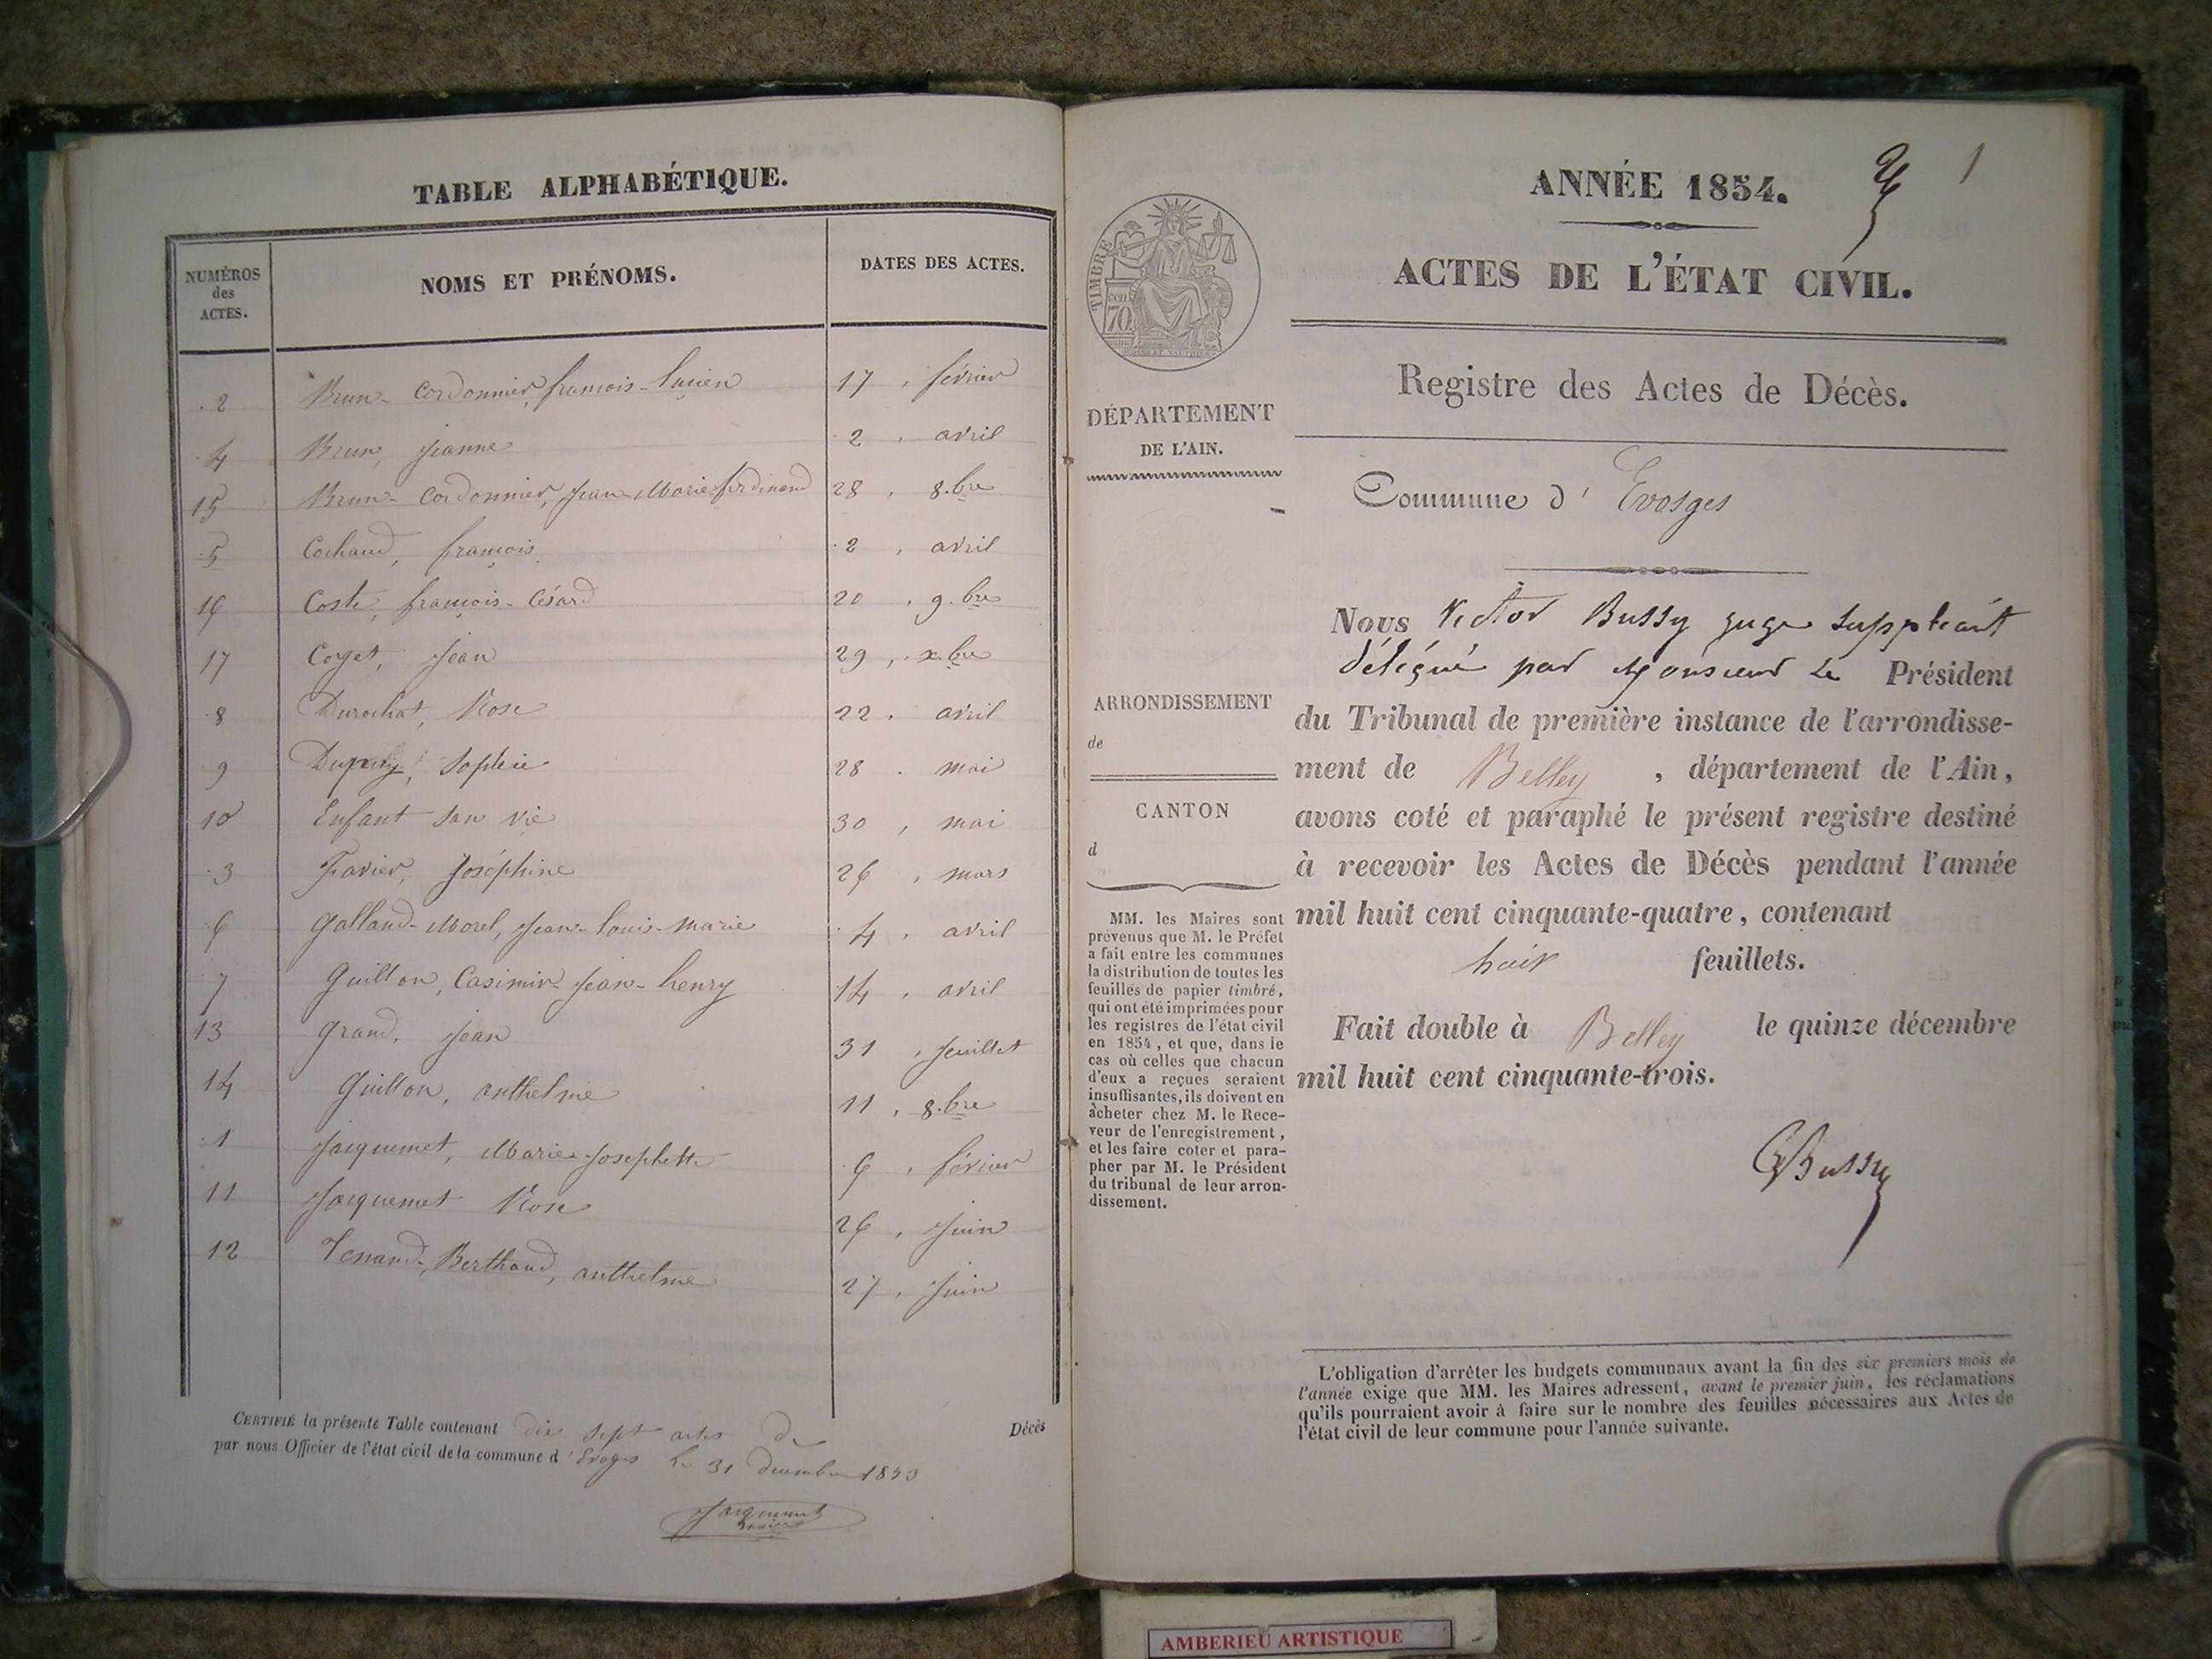 TABLE ALPHABÉTIQUE.
NUMÉROS des ACTES. NOMS ET PRÉNOMS. DATES DES ACTES.
2 Brun-Cordonnier, françois-Lucien 17, février
4 Brun, Jeanne 2, avril
15 Brun-Cordonnier, Jean-Marie-ferdinand 28, 8.bre
5 Cochaud, françois 2, avril
16 Coste, françois-Césard 20, 9.bre
17 Coget, Jean 29, x.bre
8 Durochat, Rose 22, avril
9 Dupuy, Sophie 28. mai
10 Enfant San vie 30, mai
3 Favier, Joséphine 26, mars
6 Galland-Morel, Jean-Louis-Marie 4, avril
7 Guillon, Casimir-Jean-henry 14, avril
13 Grand, Jean 31, Juillet
14 Guillon, anthelme 11, 8.bre
1 Jacquemet, Marie-Josephette 6, février
11 Jacquemet Rose 26, Juin
12 Tenand-Berthaud, anthelme 27, Juin
CERTIFIÉ la présente Table contenant dix sept actes de Décès
par nous Officier de l'état civil de la commune d'Evoges le 31 décembre 1853
Jacquemet
ANNÉE 1854.
1
ACTES DE L'ÉTAT CIVIL.
TIMBRE
70
Registre des Actes de Décès.
DÉPARTEMENT
DE L'AIN.
Commune d' Evosges
ARRONDISSEMENT
de
CANTON
d
MM. les Maires sont
prévenus que M. le Préfet
a fait entre les communes
la distribution de toutes les
feuilles de papier timbré,
qui ont été imprimées pour
les registres de l'état civil
en 1854, et que, dans le
cas où celles que chacun
d'eux a reçues seraient
insuffisantes, ils doivent en
acheter chez M. le Rece-
veur de l'enregistrement,
et les faire coter et para-
pher par M. le Président
du tribunal de leur arron-
dissement.
Nous Victor Bussy juge suppléant
délégué par Monsieur Le Président
du Tribunal de première instance de l'arrondisse-
ment de Belley, département de l'Ain,
avons coté et paraphé le présent registre destiné
à recevoir les Actes de Décès pendant l'année
mil huit cent cinquante-quatre, contenant
huit feuillets.
Fait double à Belley le quinze décembre
mil huit cent cinquante-trois.
Bussy
L'obligation d'arrêter les budgets communaux avant la fin des six premiers mois de
l'année exige que MM. les Maires adressent, avant le premier juin, les réclamations
qu'ils pourraient avoir à faire sur le nombre des feuilles nécessaires aux Actes de
l'état civil de leur commune pour l'année suivante.
AMBERIEU ARTISTIQUE